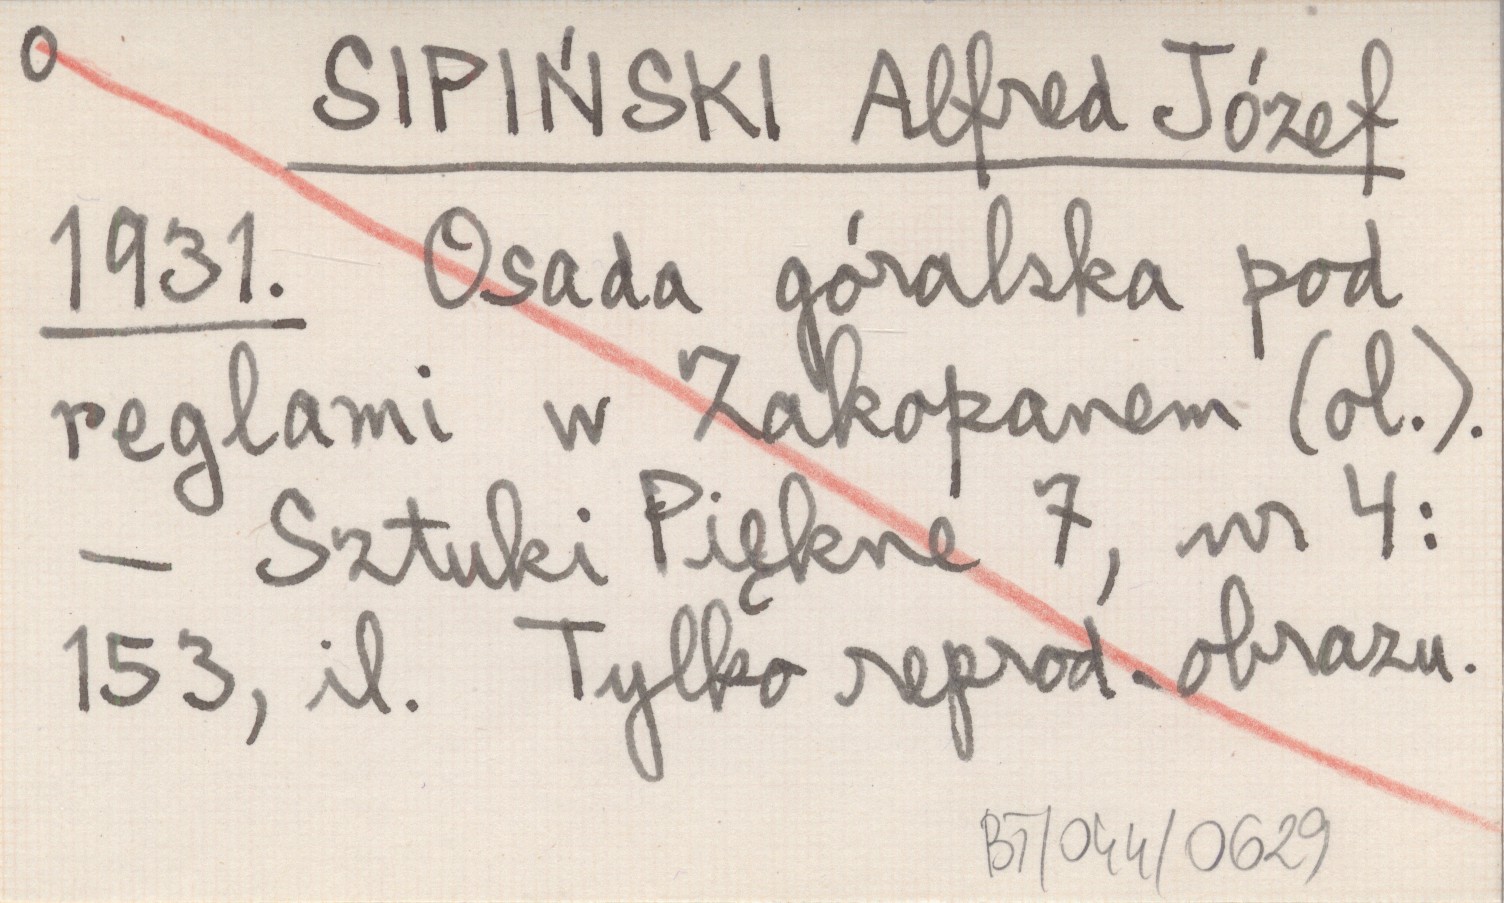 o SIPIŃSKI Alfred Józef
1931. Osada góralska pod
reglami w Zakopanem (ol.).
— Sztuki Piękne 7, nr 4:
153, il. Tylko reprod. obrazu.
BT/044/0629